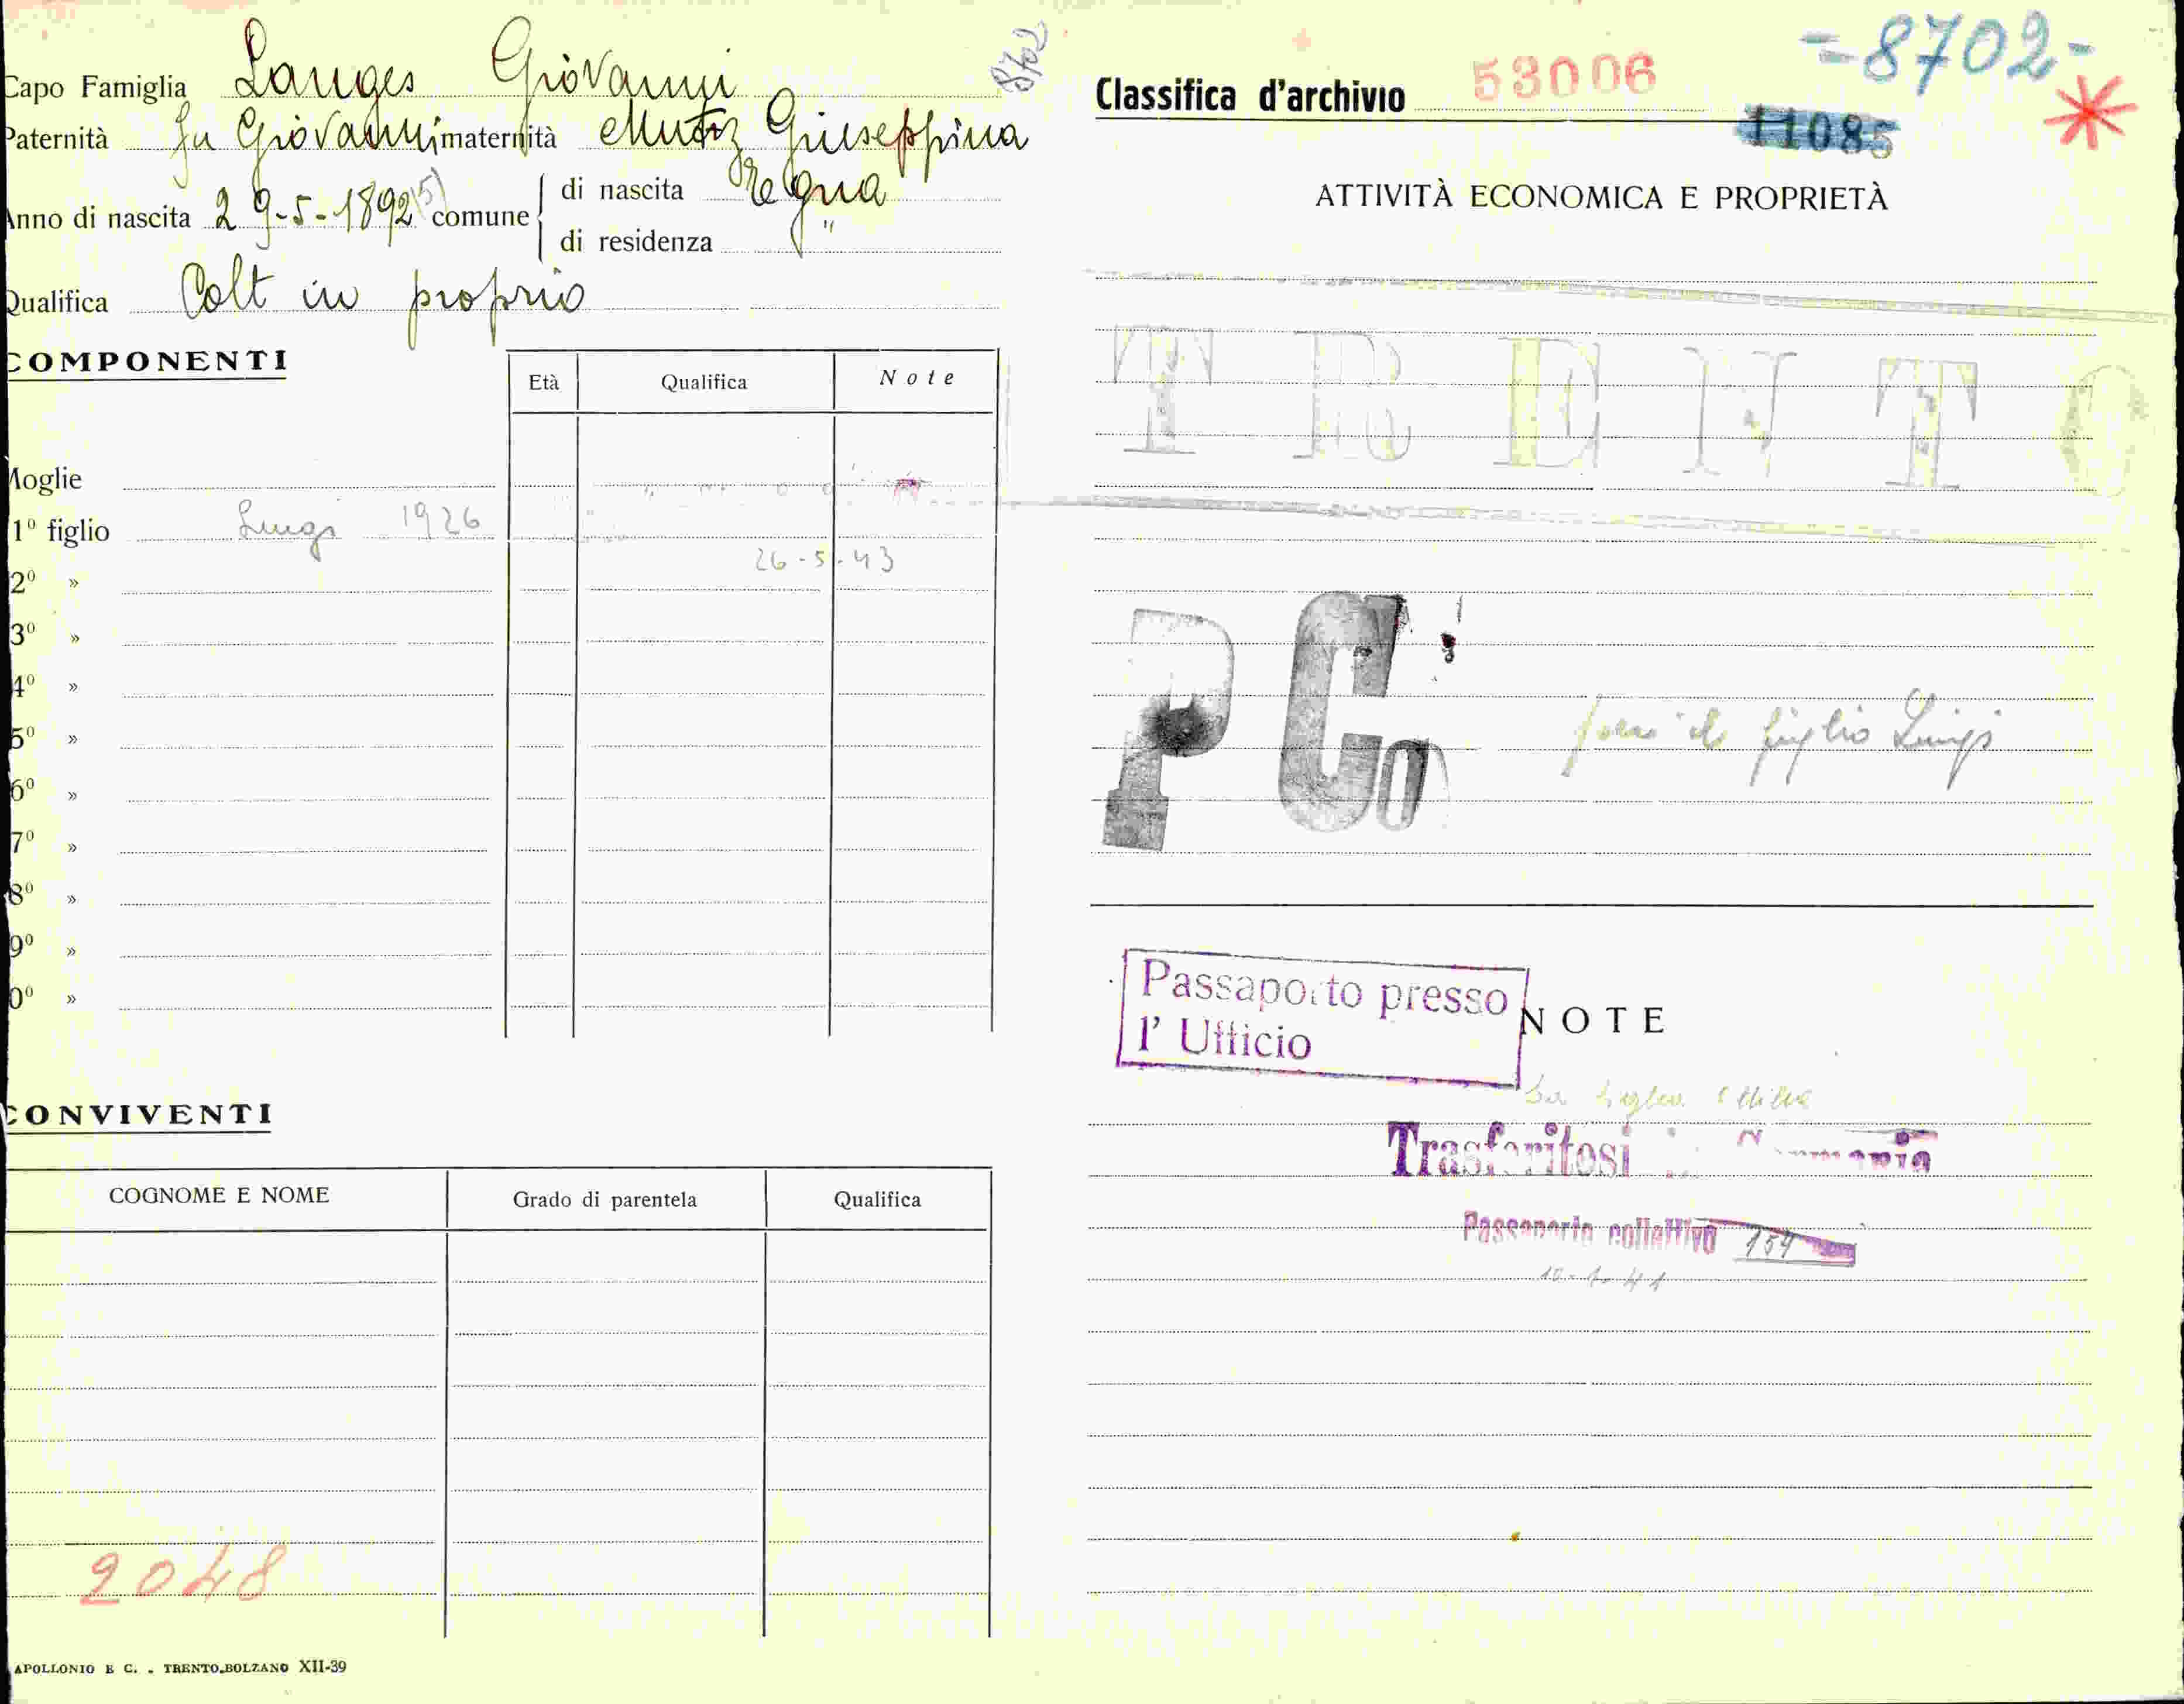 Capo Famiglia Langes Giovanni
8702
Paternità fu Giovanni maternità Mutz Giuseppina
Anno di nascita 29-5-1892 (5) comune di nascita Tegna
di residenza "
Qualifica Colt in proprio
COMPONENTI
Età Qualifica Note
Moglie
1º figlio Luigi 1926
26-5-43
2º »
3º »
4º »
5º »
6º »
7º »
8º »
9º »
0º »
CONVIVENTI
COGNOME E NOME Grado di parentela Qualifica
2048
APOLLONIO E C. - TRENTO-BOLZANO XII-39
-8702-
Classifica d'archivio 53006
11085
ATTIVITÀ ECONOMICA E PROPRIETÀ
TRENTO
P Co
figlio Luigi
Passaporto presso
l' Ufficio
NOTE
Trasferitosi in Germania
Passaporto collettivo 154